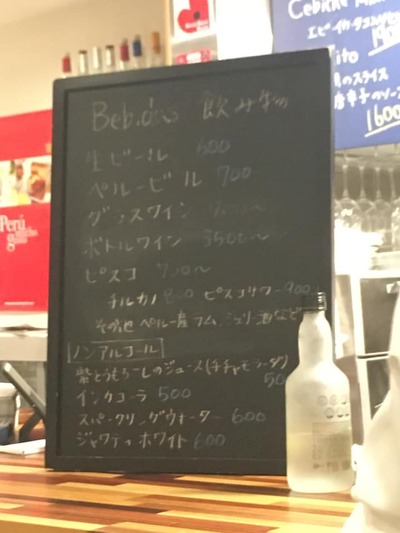 Cebiche
エビ・イカ・タコ
のスライス
1600
Perú
Bebidas 飲み物
生ビール 600
ペルービール 700
グラスワイン
ボトルワイン 3500〜
ピスコ 700〜
チルカノ 800 ピスコサワー 900
その他 ペルー産 ラム、ジン、酒など
ノンアルコール
紫とうもろこしのジュース(チチャモラーダ)
500
インカコーラ 500
スパークリングウォーター 600
ジャワティ ホワイト 600